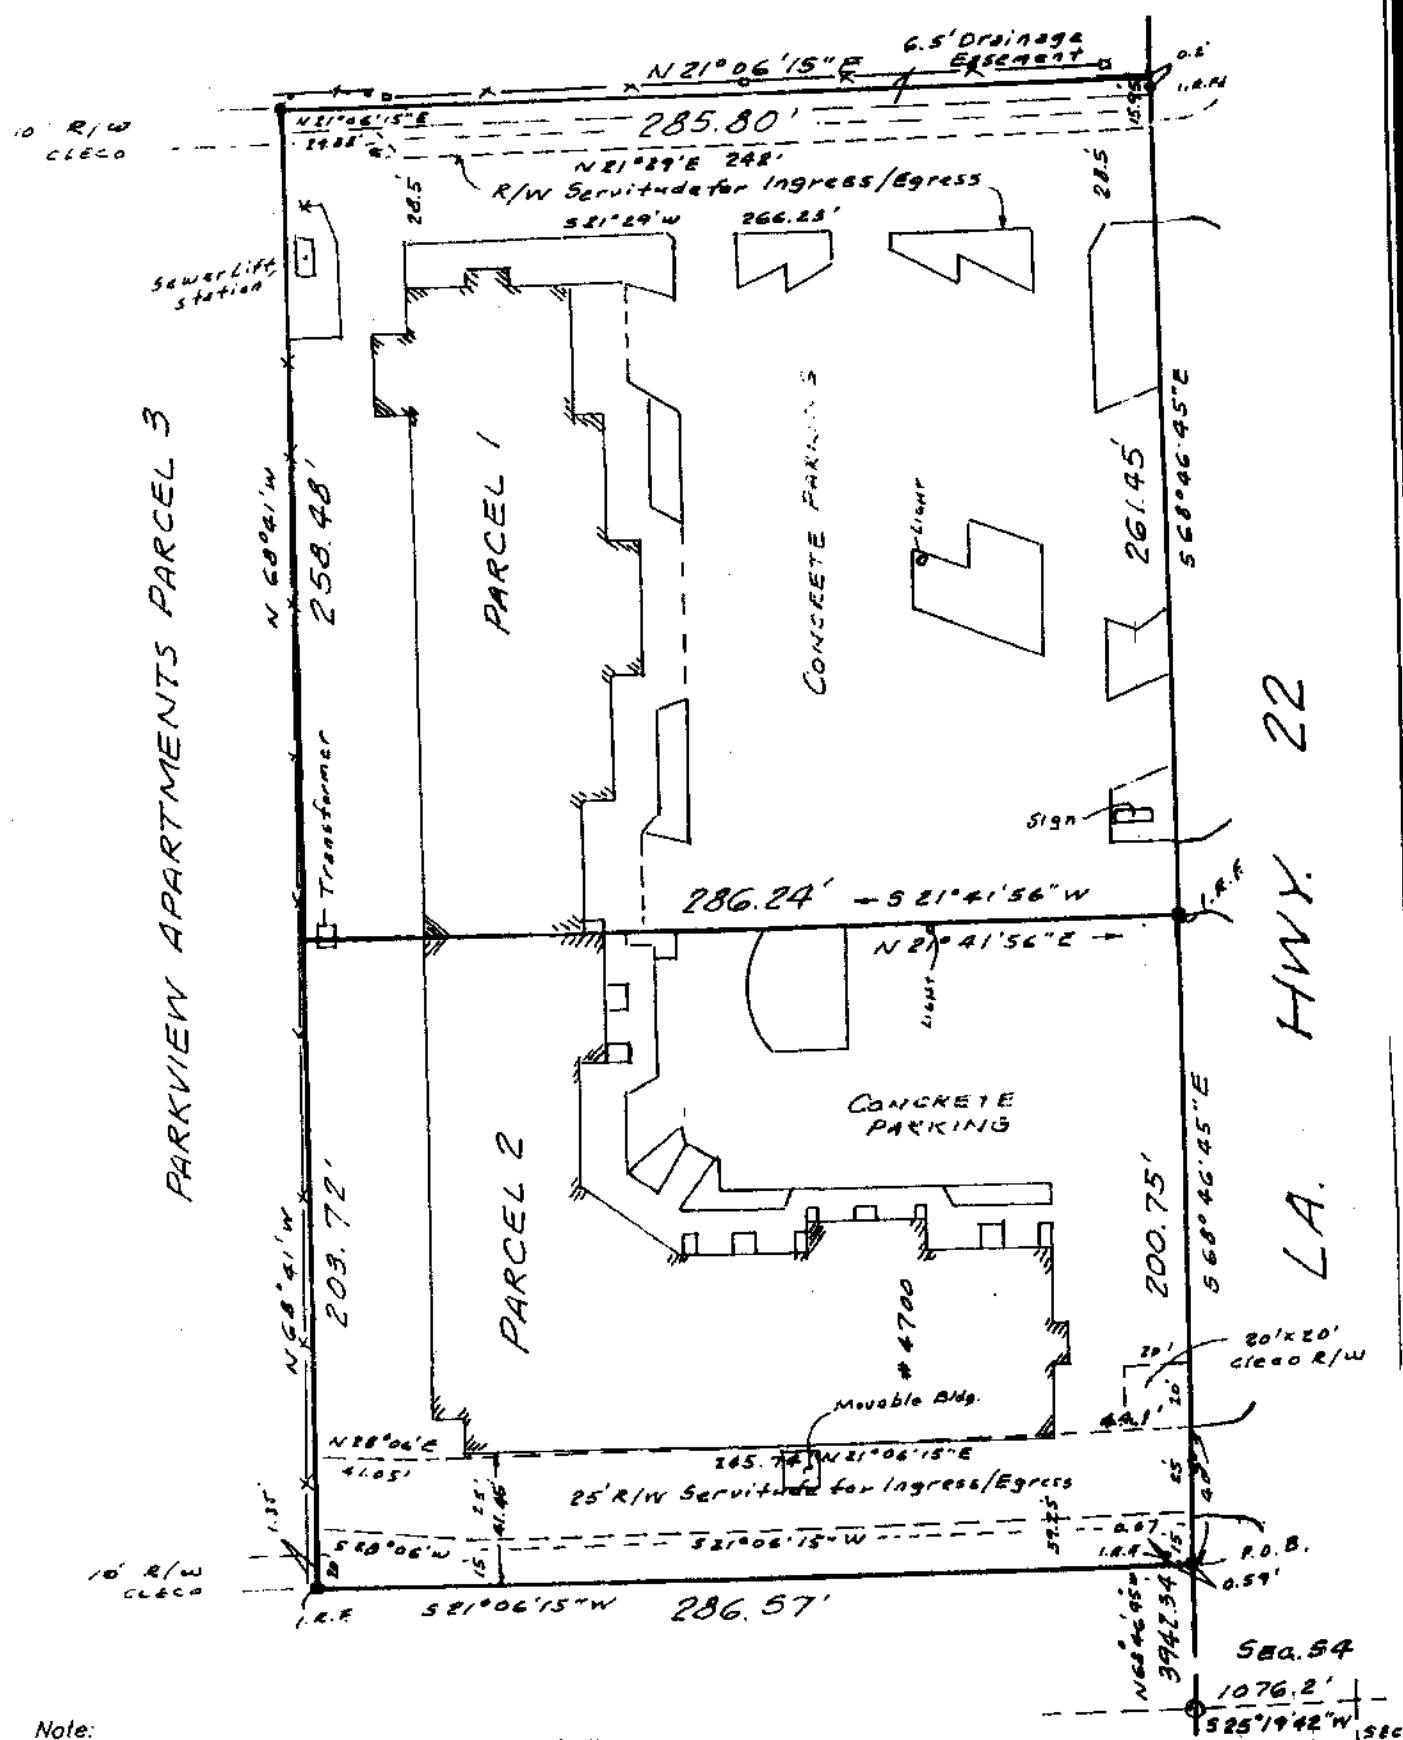 6.5' Drainage
Easement
N 21° 06' 15" E
0.2'
I.R.Fd
10' R/W
CLECO
N 21° 06' 15" E
285.80'
15.95'
N 21° 29' E 242'
R/W Servitude for Ingress/Egress
28.5'
28.5'
S 21° 29' W 266.23'
Sewer Lift
Station
PARKVIEW APARTMENTS PARCEL 3
N 68° 41' W
258.48'
PARCEL 1
CONCRETE PARKING
LIGHT
261.45'
S 68° 46' 45" E
Transformer
Sign
LA. HWY. 22
286.24' S 21° 41' 56" W
I.R.F.
N 21° 41' 56" E
LIGHT
CONCRETE
PARKING
N 68° 41' W
203.72'
PARCEL 2
200.75'
S 68° 46' 45" E
# 4700
20' x 20'
Cleco R/W
20'
20'
Movable Bldg.
44.1'
N 28° 06' E
41.05'
245.74' N 21° 06' 15" E
25' R/W Servitude for Ingress/Egress
25'
41.46'
15'
59.25'
25'
40'
15'
1.35'
S 28° 06' W
S 21° 06' 15" W
0.67
I.R.F.
P.O.B.
0.59'
10' R/W
CLECO
20
I.R.F.
S 21° 06' 15" W 286.57'
N 68° 46' 45" W
3942.34'
SEC. 54
1076.2'
S 25° 19' 42" W
SEC
Note: